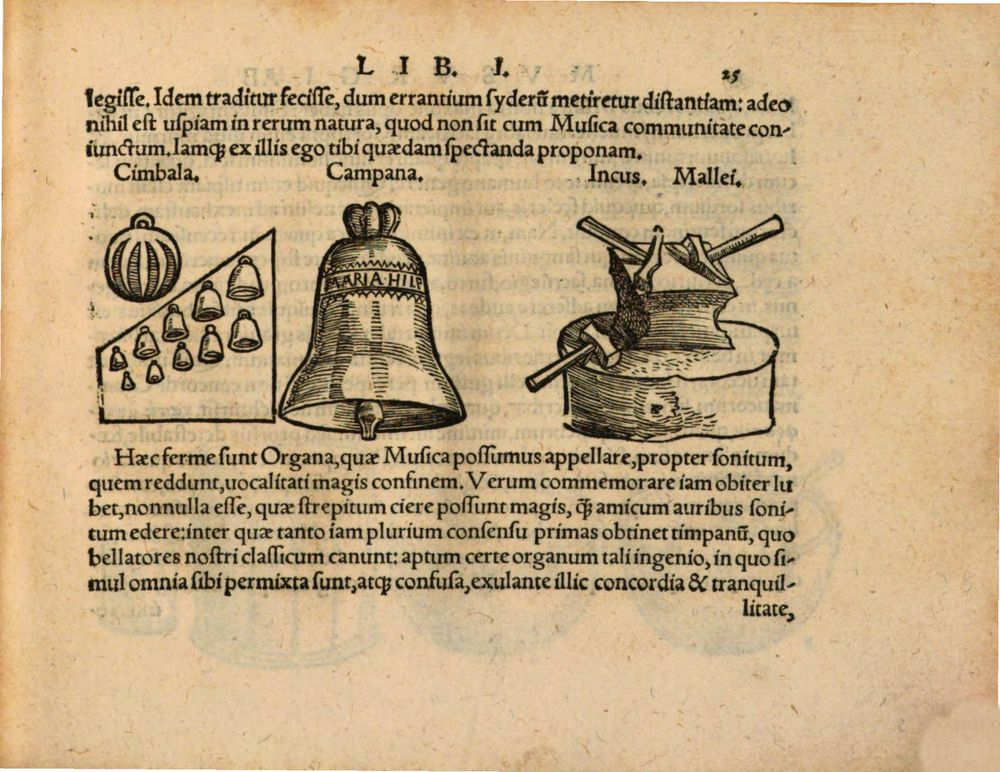 LIB. I. 25
legisse. Idem traditur fecisse, dum errantium syderū metiretur distantiam: adeo
nihil est uspiam in rerum natura, quod non sit cum Musica communitate con-
iunctum. Iamq; ex illis ego tibi quædam spectanda proponam.
Cimbala. Campana. Incus. Mallei.
MARIA HILF
Hæc ferme sunt Organa, quæ Musica possumus appellare, propter sonitum,
quem reddunt, uocalitati magis confinem. Verum commemorare iam obiter lu
bet, nonnulla esse, quæ strepitum ciere possunt magis, q̃ amicum auribus soni-
tum edere: inter quæ tanto iam plurium consensu primas obtinet timpanū, quo
bellatores nostri classicum canunt: aptum certe organum tali ingenio, in quo si-
mul omnia sibi permixta sunt, atq; confusa, exulante illic concordia & tranquil-
litate,